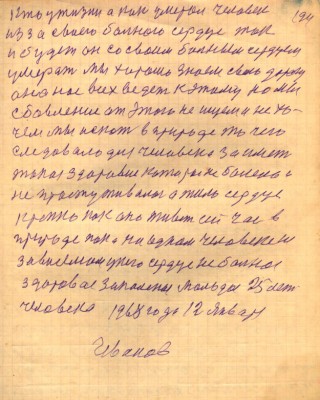 194
Кто у жизни а как умером человек
из за своего больного сердце так
и будет он со своим больным сердцем
умерат мы хорошо знаем свою дорогу
она нас всех ведет к этому но мы
сбавление от этого не ищем и не хо-
чем мы искат в природе то чего
следовало для человека заиметь
такое здоровие которое не болело а
не простуживалос а жило сердце
крепко как оно живет сей час в
природе пока на одном человеке и
зависемом у него сердце не больное
здоровае закаленае молодое 25 лет
человека 1968 года 12 Января
Иванов